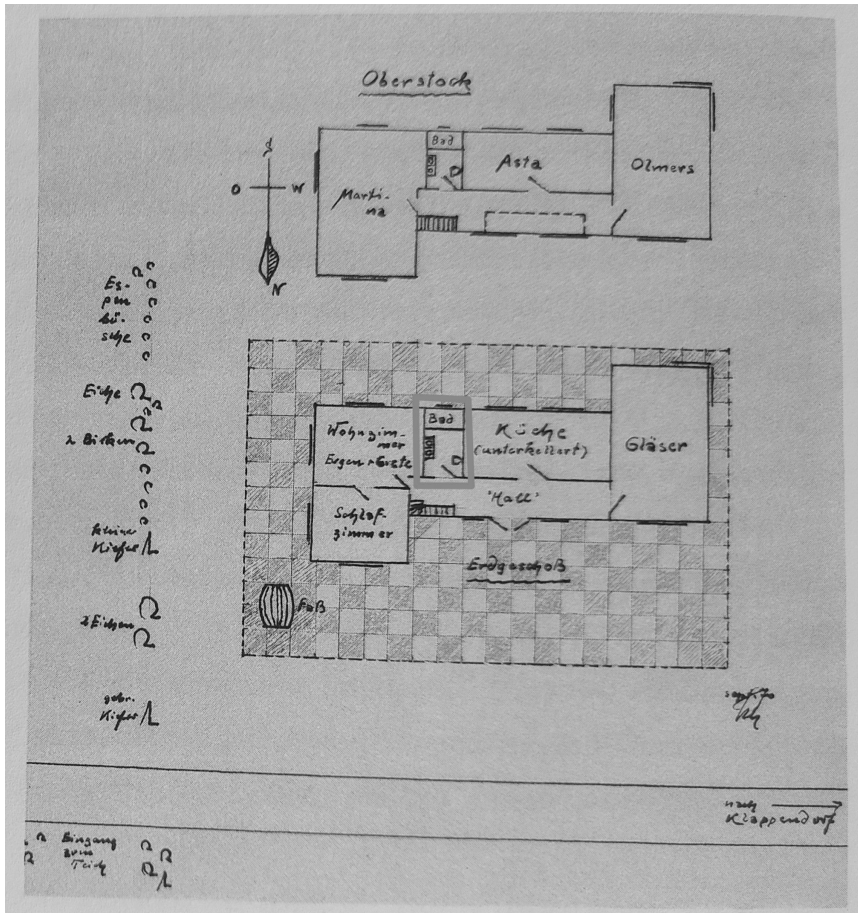 Oberstock
S
O
W
N
Bad
Asta
Olmers
Marti-
na
Es-
pen
bü-
sche
Eiche
2 Birken
kleine
Kiefer
2 Eichen
gebr.
Kiefer
Wohnzim-
mer
Eugen + Grete
Bad
Küche
(unterkellert)
Gläser
Schlaf-
zimmer
'Hall'
Erdgeschoß
Faß
nach
Klappendorf
Eingang
zum
Teich